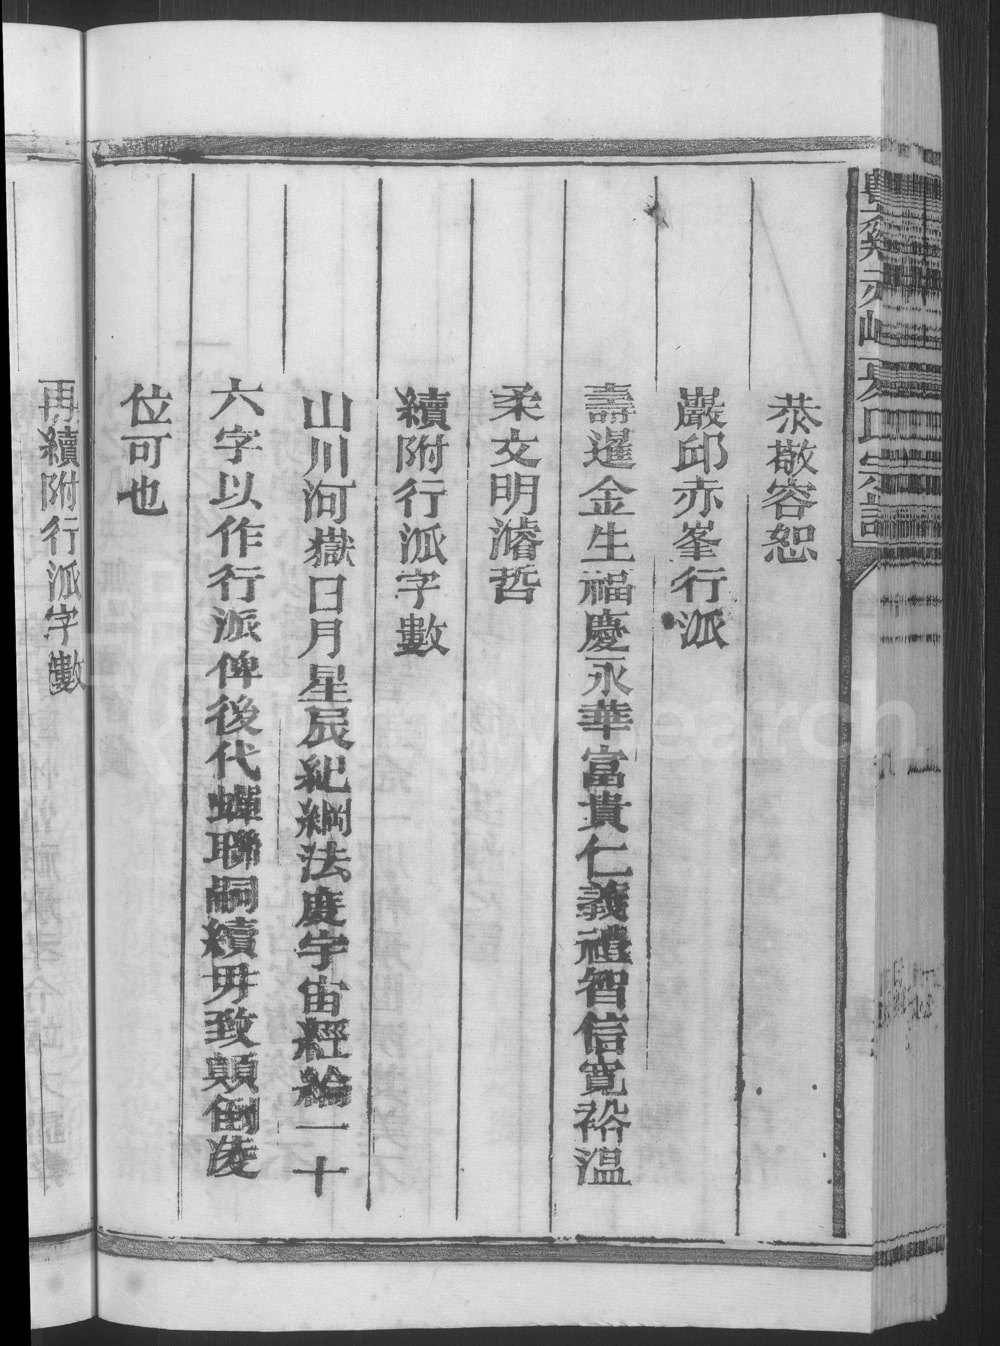 恭敬容恕
巖邱赤峯行派
壽暹金生福慶永華富貴仁義禮智信寬裕溫
柔文明濬哲
續附行派字數
山川河嶽日月星辰紀綱法度宇宙經綸一十
六字以作行派俾後代蟬聯嗣續毋致顛倒淩
位可也
再續附行派字數